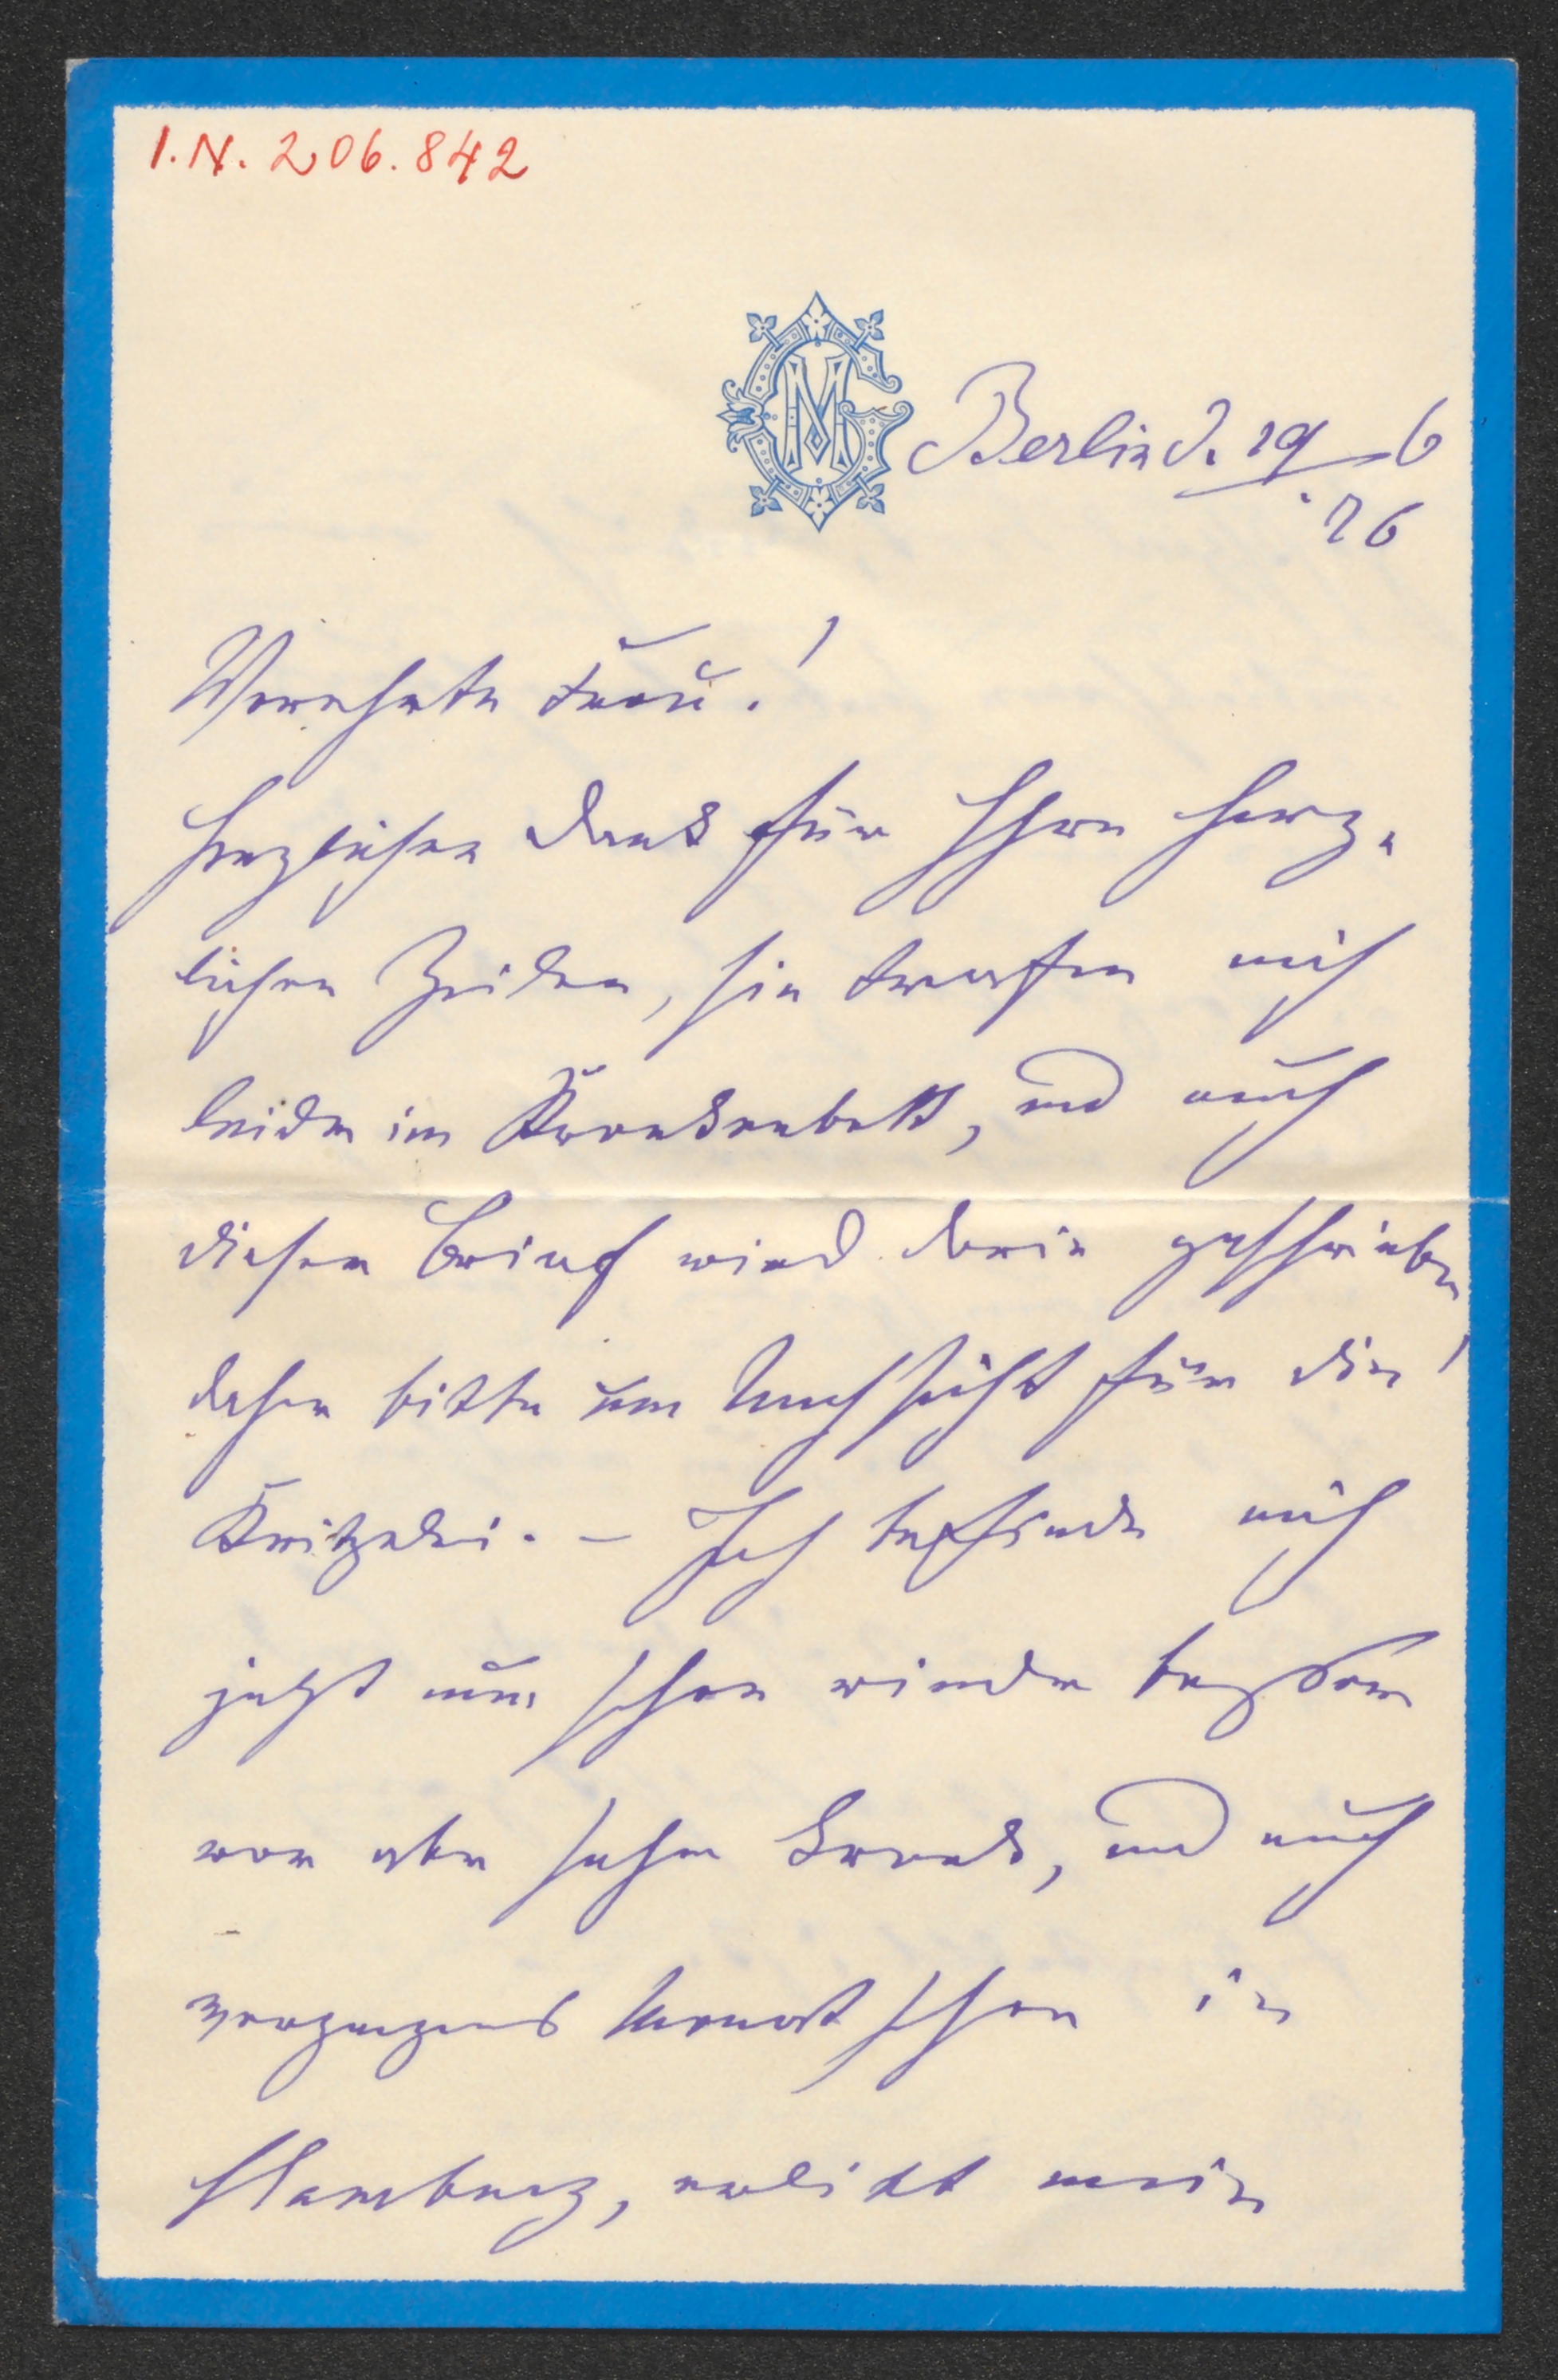 I.N. 206.842
GM
Berlin d. 19/6
.76
Verehrte Frau!
Herzlichen Dank für Ihre herz-
lichen Zeilen, sie trafen mich
leider im Krankenbett, und auch
dieser Brief wird darin geschrieben
daher bitte um Nachsicht für die
Kritzelei. – Ich befinde mich
jetzt nun schon wieder besser
war aber sehr krank, und auch
vergangenes Monat schon in
Hamburg, erlitt mein